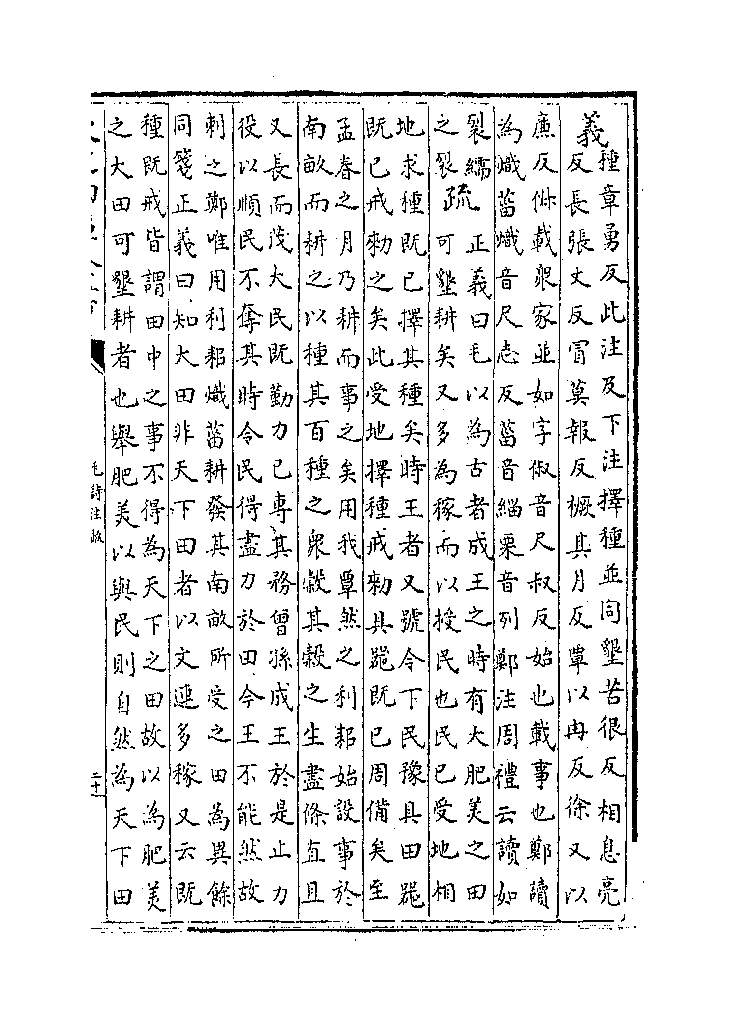 義
種章勇反此注及下注擇種並同墾苦很反相息亮
反長張丈反冐莫報反橛其月反覃以冉反徐又以
廉反俶載衆家並如字俶音尺叔反始也載事也鄭讀
為熾菑熾音尺志反菑音緇栗音列鄭注周禮云讀如
裂繻
之裂
疏
正義曰毛以為古者成王之時有大肥美之田
可墾耕矣又多為稼而以授民也民已受地相
地求種既已擇其種矣時王者又號令下民豫具田器
既已戒勑之矣此受地擇種戒勑具器既已周備矣至
孟春之月乃耕而事之矣用我覃然之利耜始設事於
南畝而耕之以種其百種之衆穀其穀之生盡條直且
又長而茂大民既勤力已專其務曾孫成王於是止力
役以順民不奪其時令民得盡力於田今王不能然故
刺之鄭唯用利耜熾菑耕發其南畝所受之田為異餘
同箋正義曰知大田非天下田者以文連多稼又云既
種既戒皆謂田中之事不得為天下之田故以為肥美
之大田可墾耕者也舉肥美以與民則自然為天下田
毛詩注疏